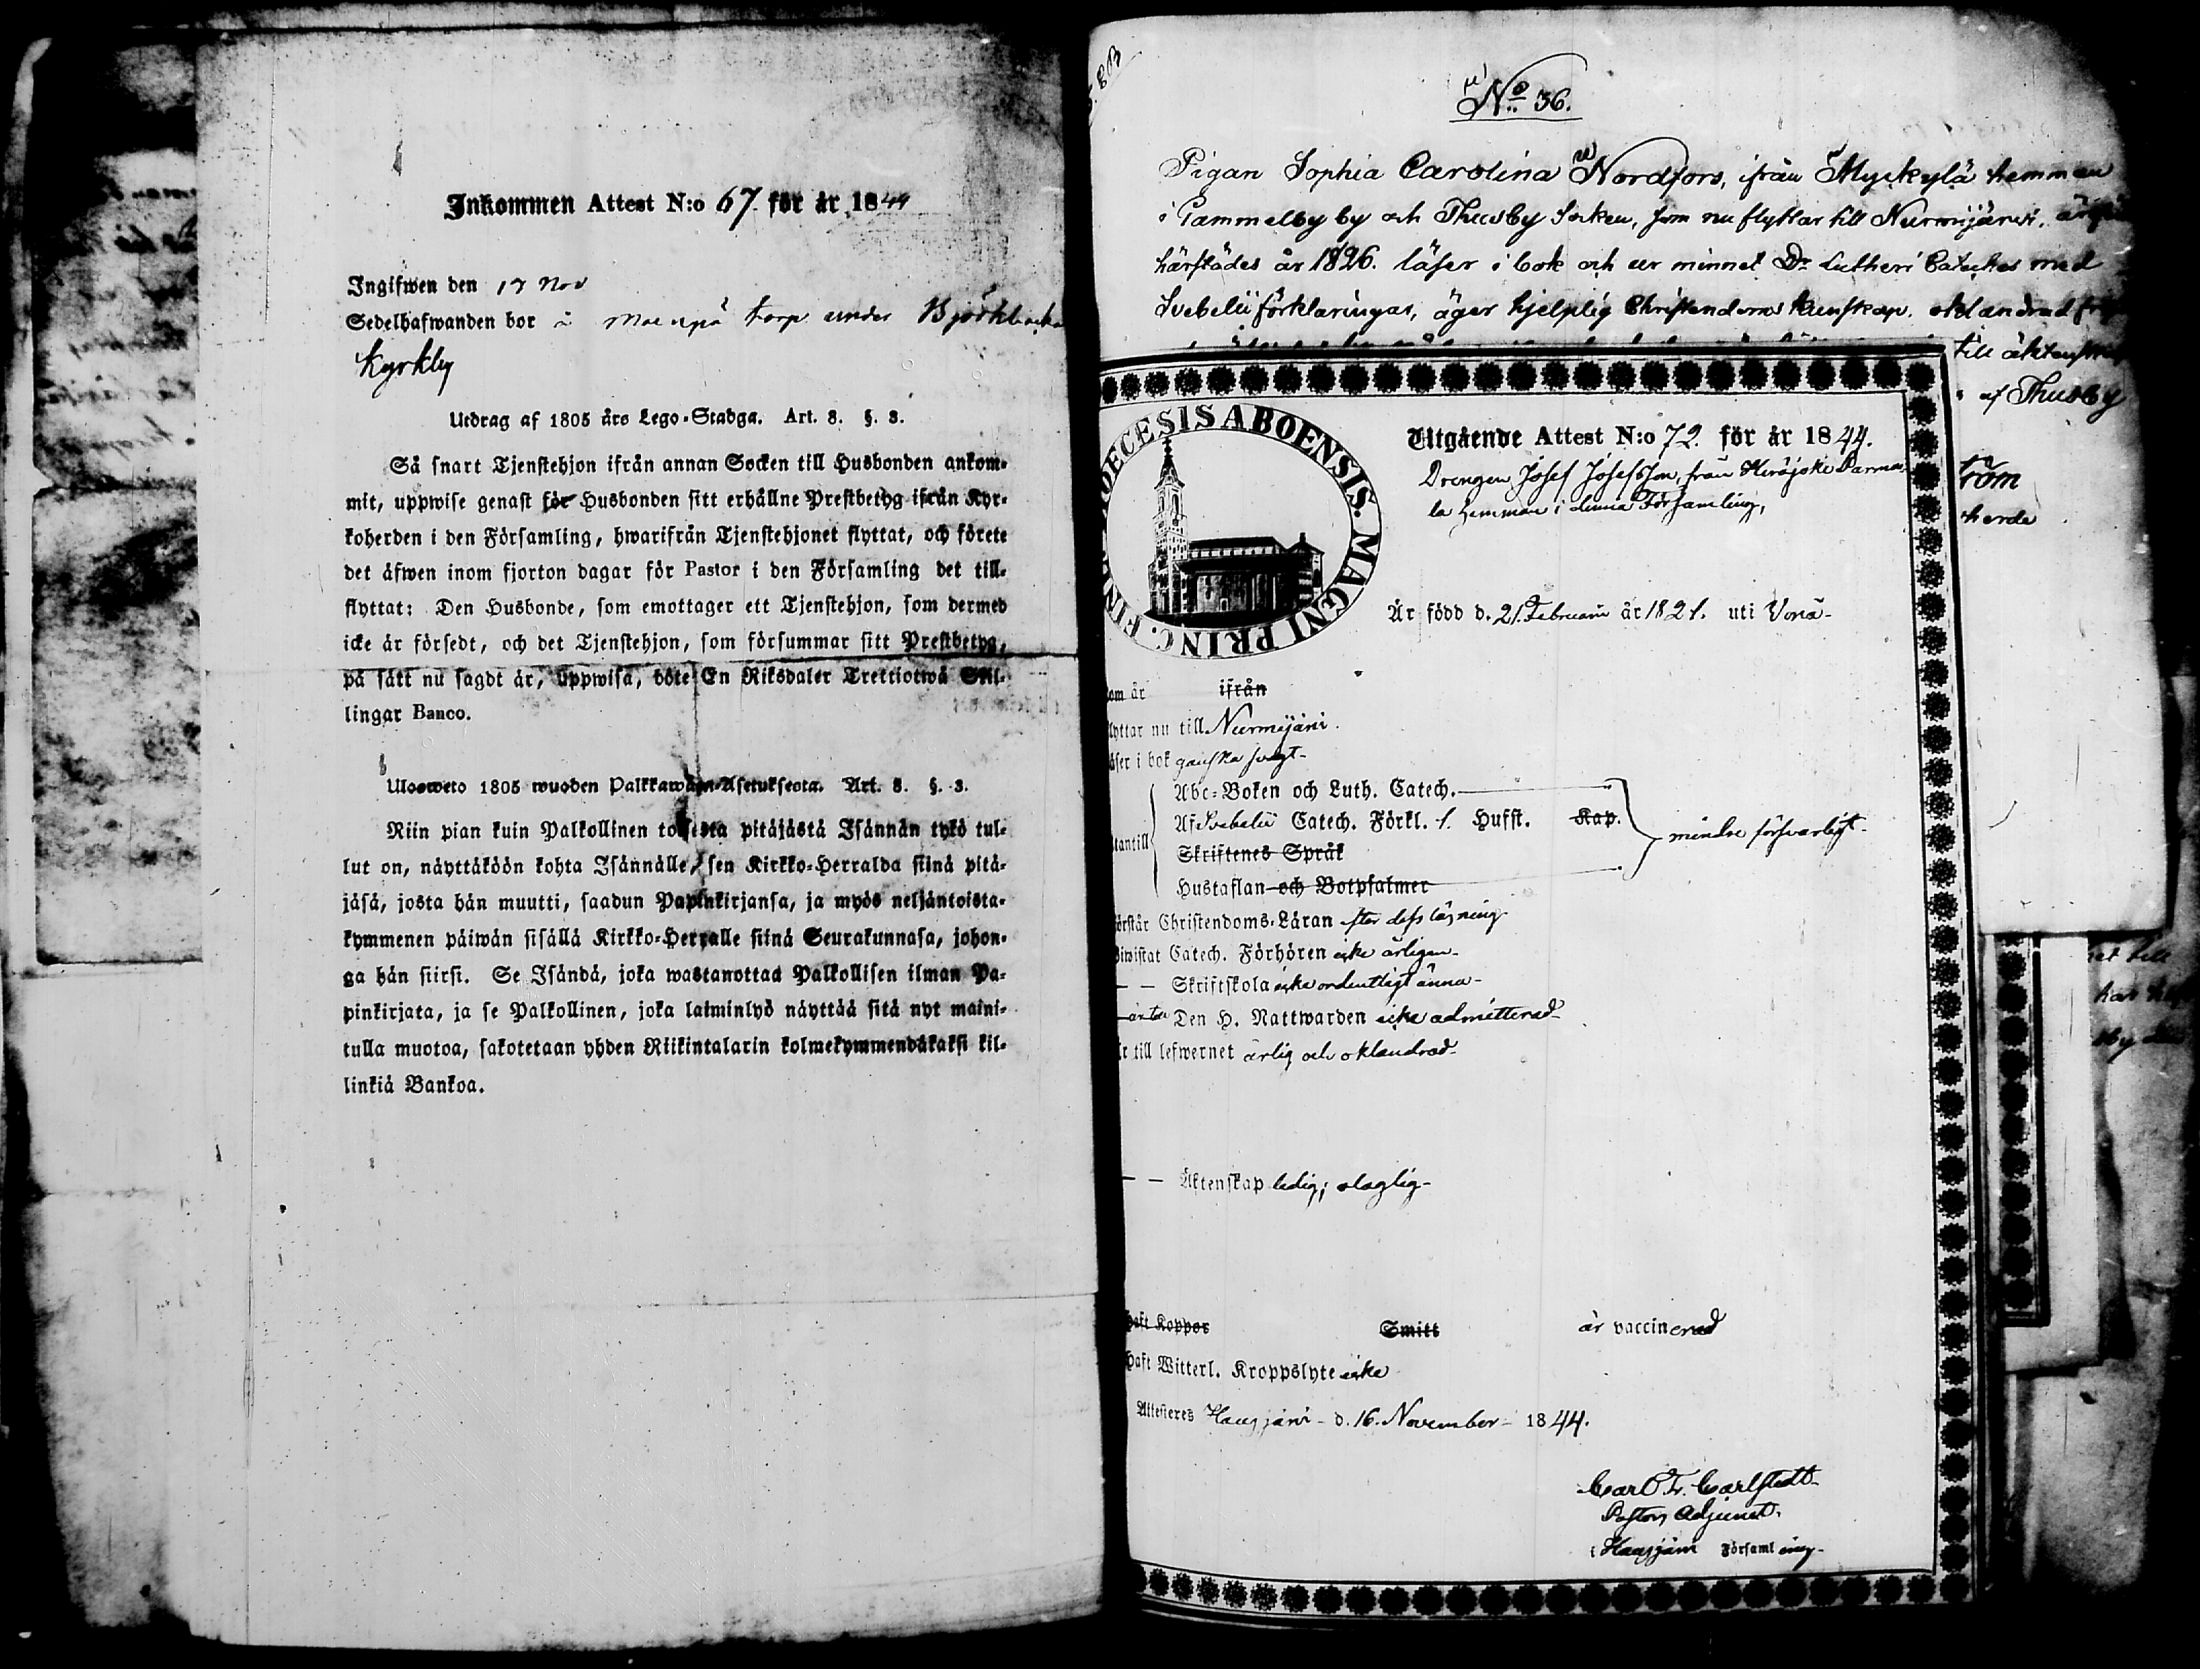 Inkommen Attest N:o 67 för år 1844
Ingifwen den 17 Nov
Sedelhafwanden bor å torp under Björkbacka
Kyrkby
Utdrag af 1805 års Lego-Stadga. Art. 8. §. 3.
Så snart Tjenstehjon ifrån annan Socken till Husbonden ankom-
mit, uppwise genast för Husbonden sitt erhållne Prestbetyg ifrån Kyr-
koherden i den Församling, hwarifrån Tjenstehjonet flyttat, och förete
det äfwen inom fjorton dagar för Pastor i den Församling det till-
flyttat: Den Husbonde, som emottager ett Tjenstehjon, som dermed
icke är försedt, och det Tjenstehjon, som försummar sitt Prestbetyg,
på sätt nu sagdt är, uppwisa, böte En Riksdaler Trettiotwå Skil-
lingar Banco.
Ulosweto 1805 wuoden Palkkawäen-Asetuksesta. Art. 8. §. 3.
Niin pian kuin Palkollinen toisesta pitäjästä Isännän tykö tul-
lut on, näyttäköön kohta Isännälle, sen Kirkko-Herralda siinä pitä-
jäsä, josta hän muutti, saadun Papinkirjansa, ja myös neljäntoista-
kymmenen päiwän sisällä Kirkko-Herralle siinä Seurakunnasa, johon-
ga hän siirsi. Se Isändä, joka wastanottaa Palkollisen ilman Pa-
pinkirjata, ja se Palkollinen, joka laiminlyö näyttää sitä nyt maini-
tulla muotoa, sakotetaan yhden Riikintalarin kolmekymmendäkaksi kil-
linkiä Bankoa.
No 36.
Pigan Sophia Carolina Nordfors, ifrån Myrkylä hemman
i Gammelby by och Thusby Socken, som nu flyttar till Nurmijärvi, är
härstädes år 1826. läser i bok och ur minnet Dr Lutheri Cateches med
Svebelii förklaringar, äger hjelplig Christendoms kunskap, oklandrad
till äktenskap
af Thusby
ström
herde
DIOECESIS ABOENSIS. MAGNI PRINC. FINL.
Utgående Attest N:o 72. för år 1844.
Drengen Josef Josefsson, från Hirvijoki Parma
la hemman i denna Församling,
Är född d. 21. Februarii år 1821. uti
om är ifrån
lyttar nu till Nurmijärvi.
äser i bok ganska svagt-
Abc-Boken och Luth. Catech.
Af Svebelii Catech. Förkl. 1. Hufst. Kap.
mindre försvarligt-
utantill
Skriftenes Språk
Hustaflan och Botpsalmer
örstår Christendoms-Läran efter dess läsning-
iwistat Catech. Förhören icke årligen-
— — Skriftskola icke ordentligt ännu-
Den H. Nattwarden icke admitterad-
är till lefwernet ärlig och oklandrad-
— — Äktenskap ledig; olaglig-
haft Koppor Smitt är vaccinerad
haft Witterl. Kroppslyte icke
Attesteres Hausjärvi - d. 16. November - 1844.
Carl F. Carlstedt-
Pastors Adjunct,
i Hausjärvi Församling-